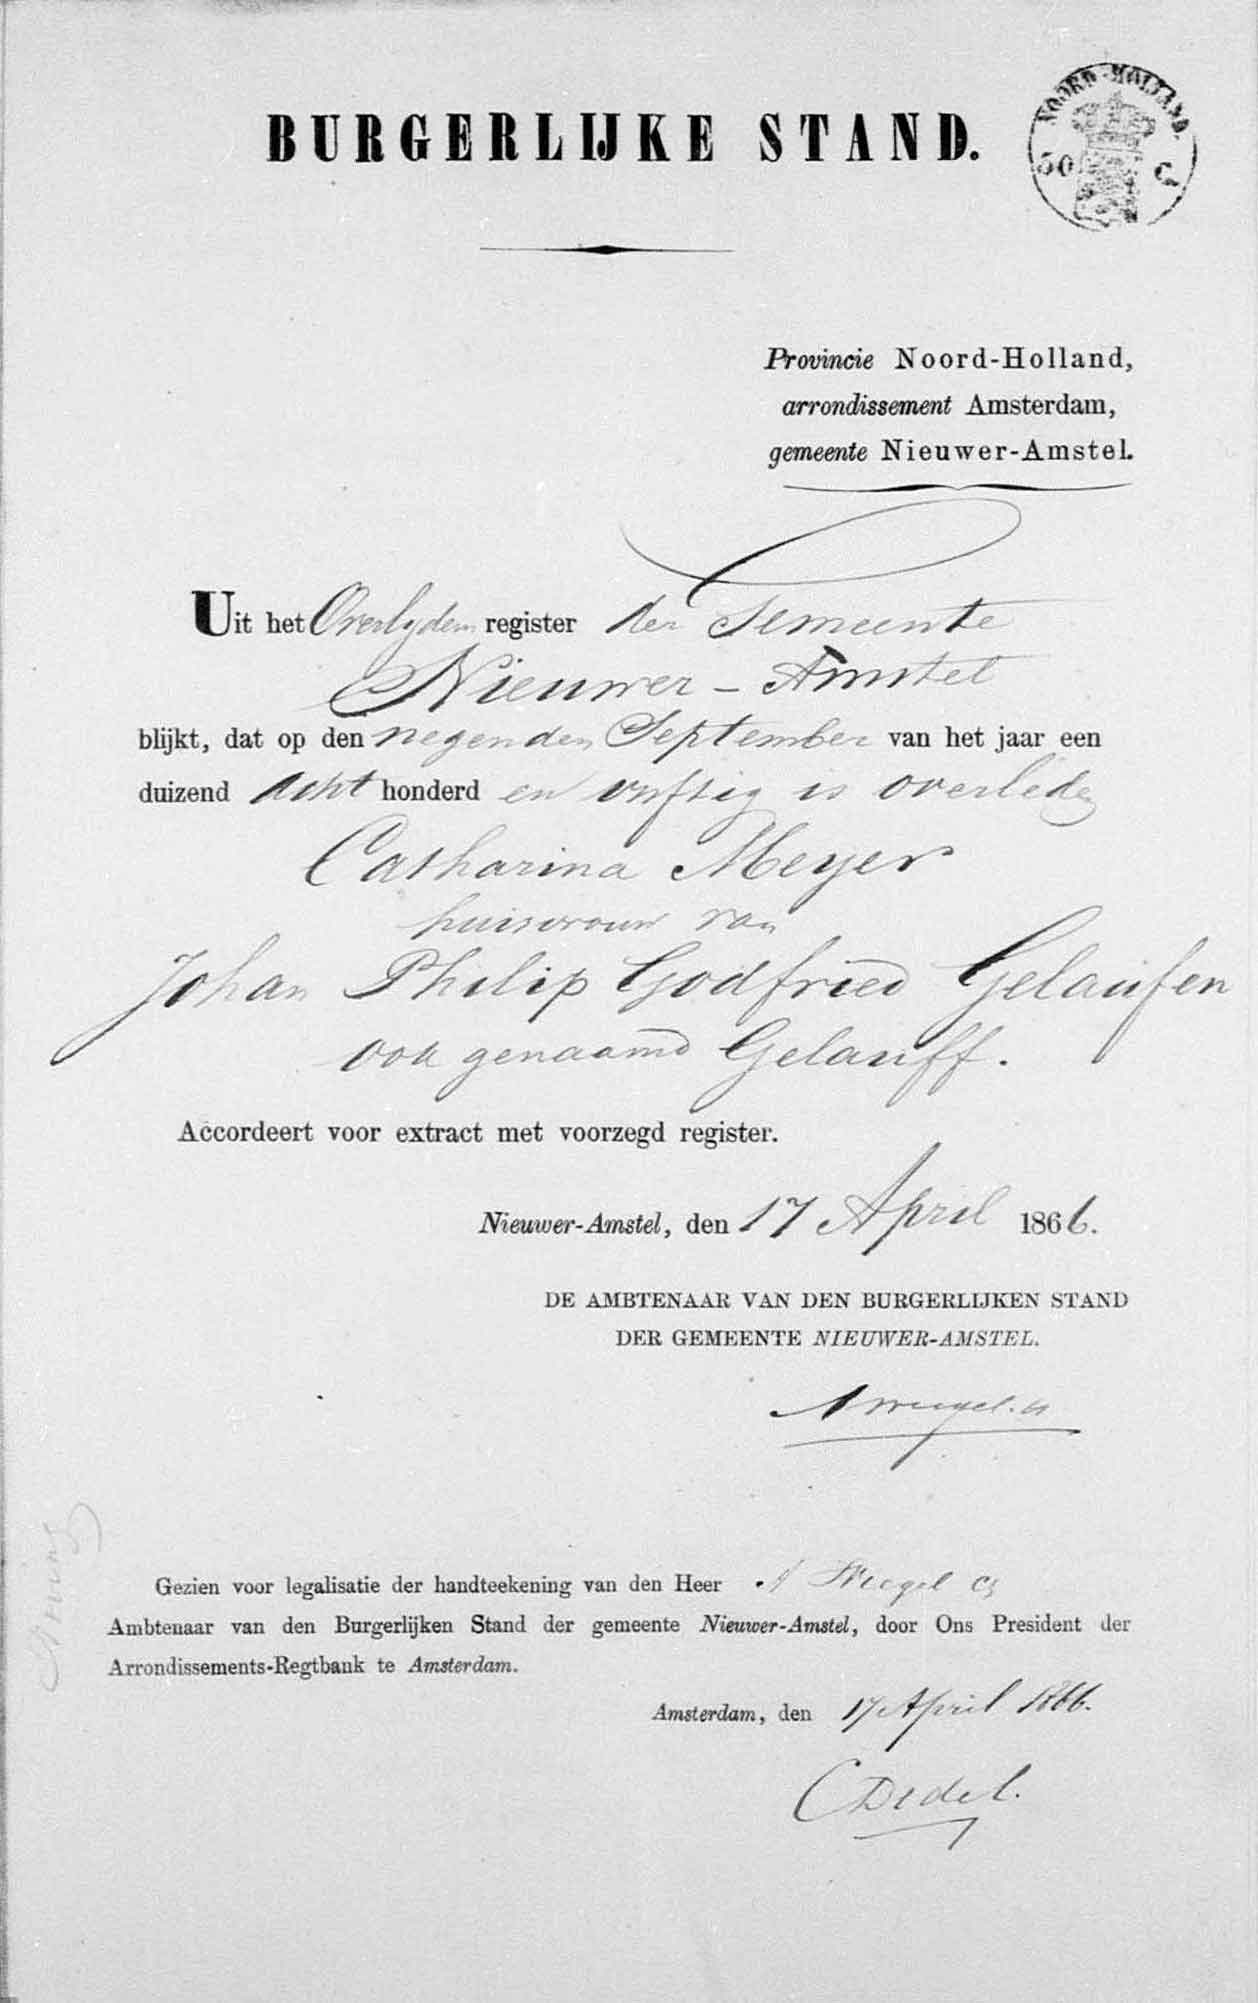 BURGERLIJKE STAND.
NOORD-HOLLAND.
50 C
Provincie Noord-Holland,
arrondissement Amsterdam,
gemeente Nieuwer-Amstel.
Uit het Overlyden register der Gemeente
Nieuwer-Amstel
blijkt, dat op den negenden September van het jaar een
duizend acht honderd en vyftig is overleden
Catharina Meyer
huisvrouw van
Johan Philip Godfried Gelaufen
ook genaamd Gelauff.
Accordeert voor extract met voorzegd register.
Nieuwer-Amstel, den 17 April 1866.
DE AMBTENAAR VAN DEN BURGERLIJKEN STAND
DER GEMEENTE NIEUWER-AMSTEL.
Gezien voor legalisatie der handteekening van den Heer
Ambtenaar van den Burgerlijken Stand der gemeente Nieuwer-Amstel, door Ons President der
Arrondissements-Regtbank te Amsterdam.
Amsterdam, den 17 April 1866.
C Dedel.